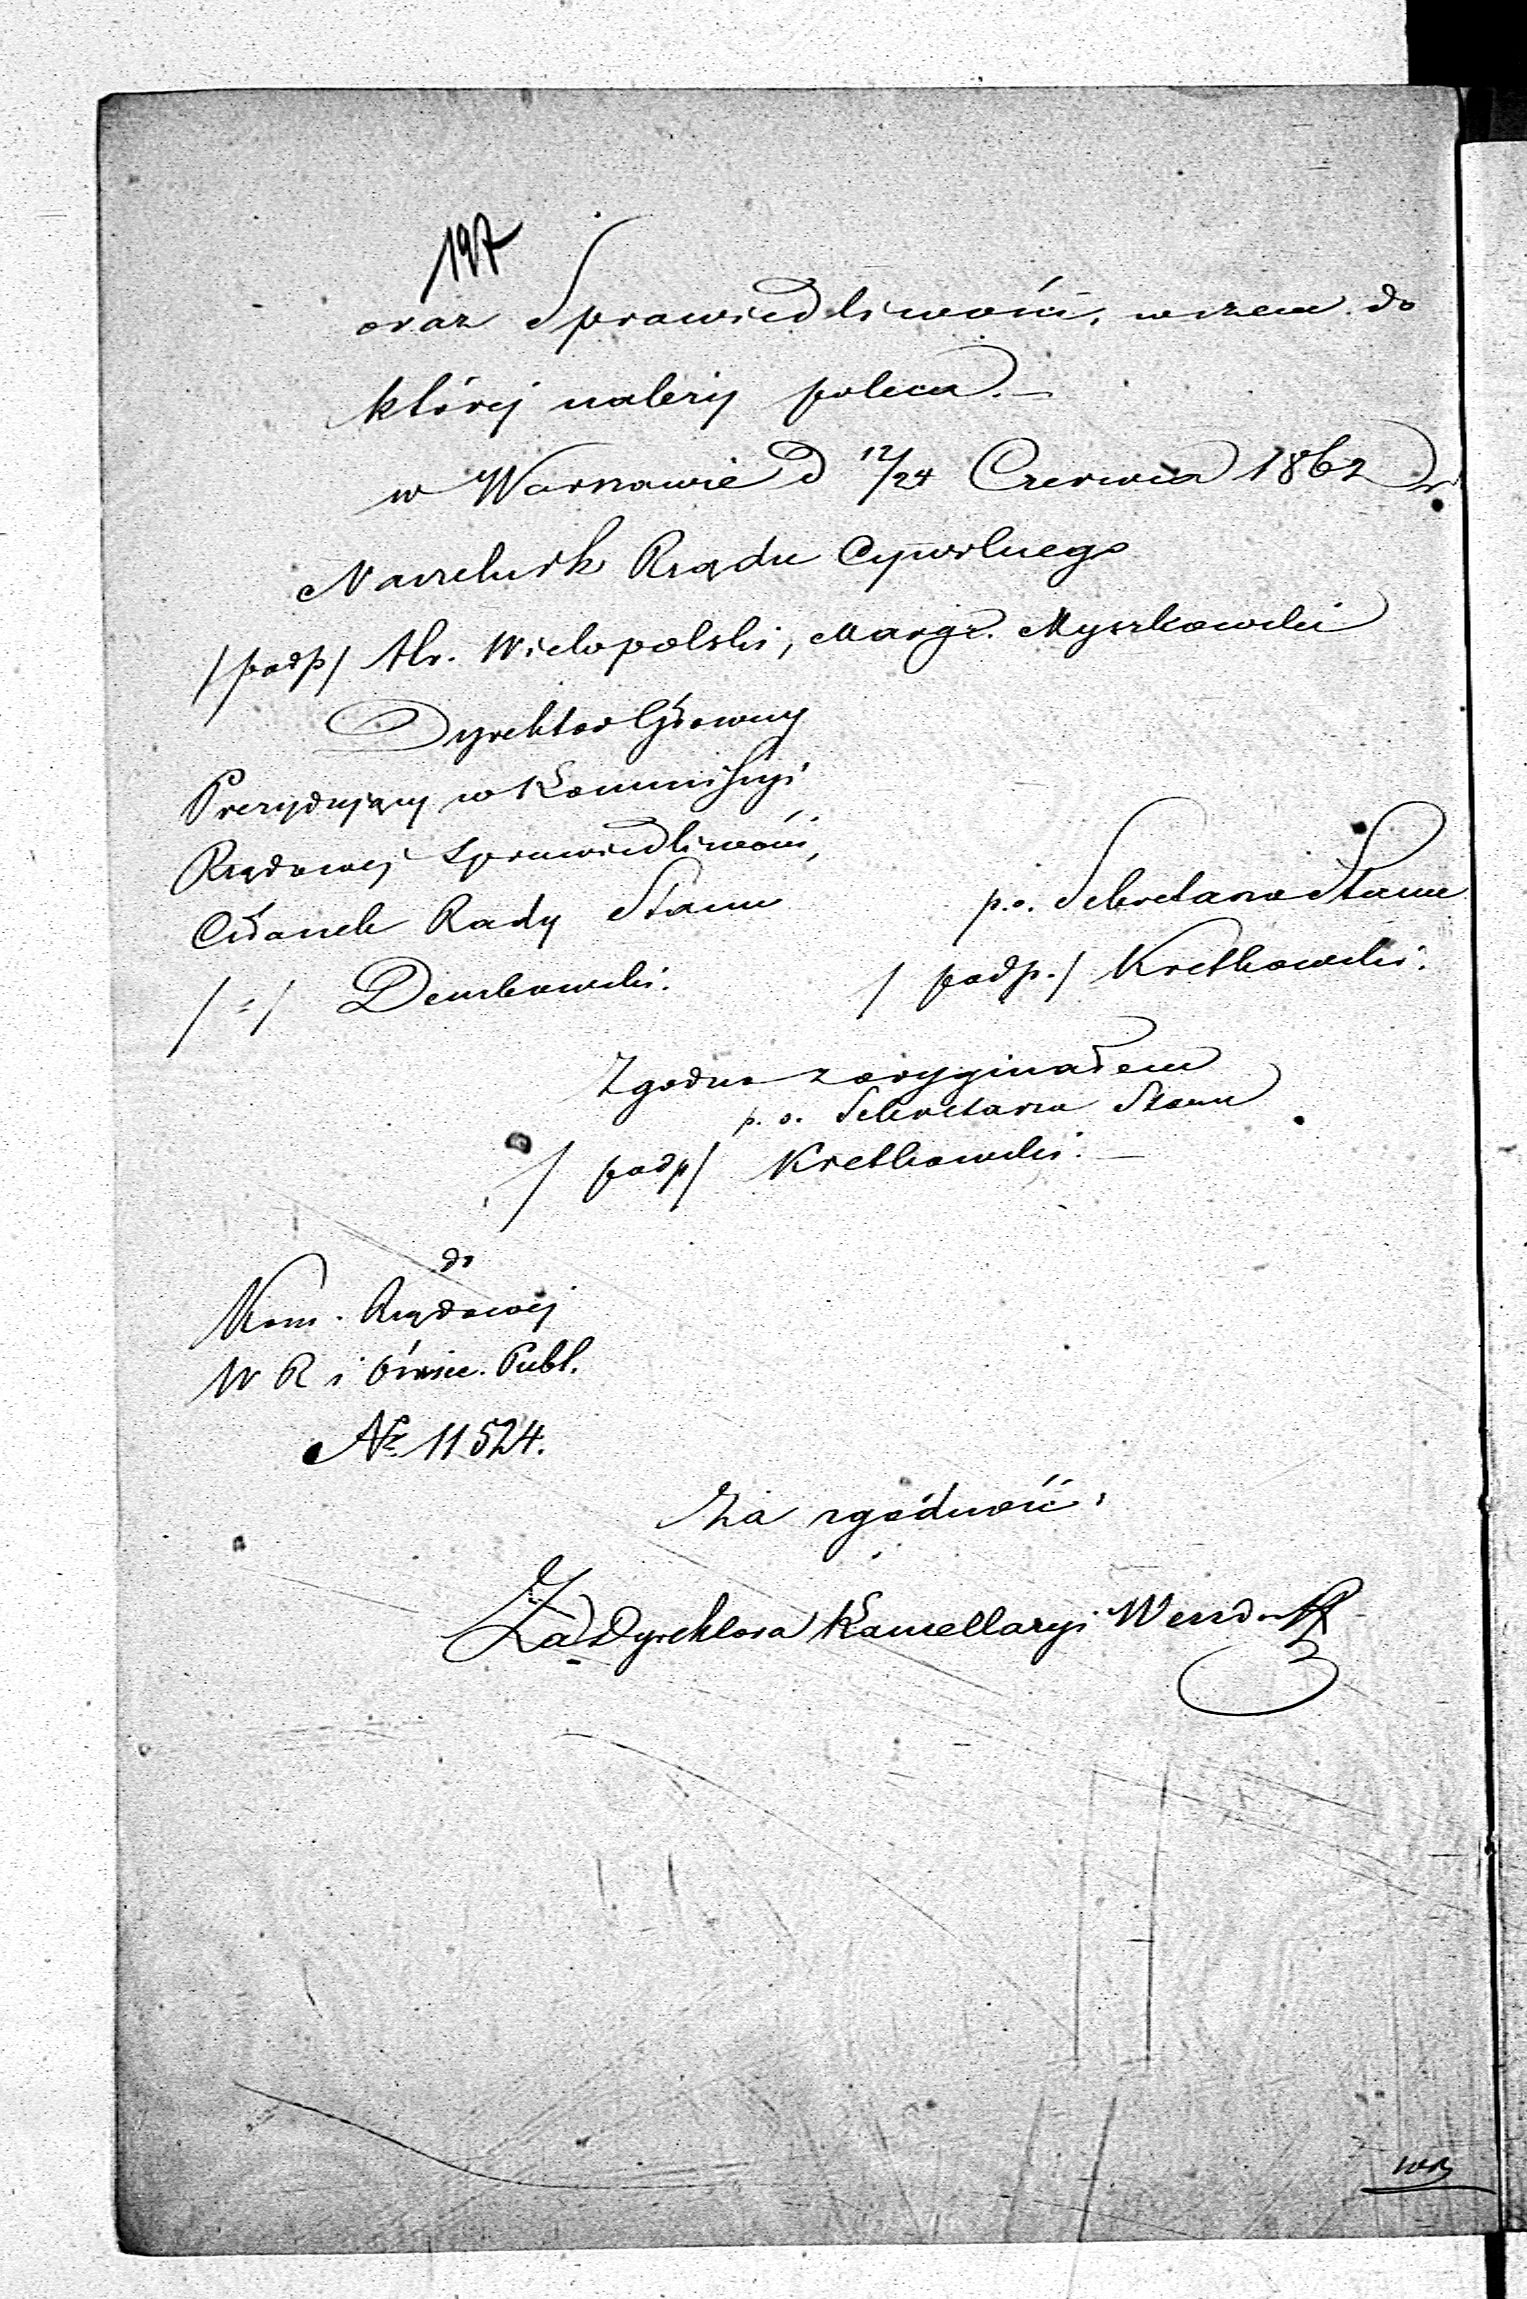 197
oraz Sprawiedliwości, wczem do
której należy poleca.—
w Warszawie d 12/24 Czerwca 1862 r.
Naczelnik Rządu Cywilnego
/podp/ Al. Wielopolski, Margr. Myszkowski
Dyrektor Główny
Prezydujący w Kommissyi
Rządowej Sprawiedliwości,
Członek Rady Stanu
/:/ Dembowski.
p.o. Sekretarza Stanu
/podp./ Kretkowski.
Zgodno z oryginałem
p. o. Sekretarza Stanu
/podp/ Kretkowski.—
do
Kom. Rządowej
W R i Oświec. Publ.
№ 11524.
Za zgodność,
Za Dyrektora Kancellaryi